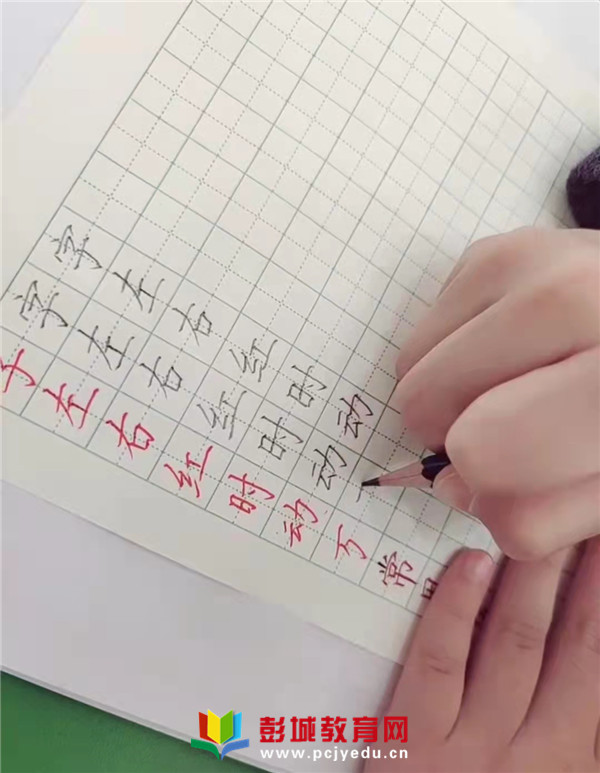 字左右红时动
字左右红时动
左右红时动万常
彭城教育网
www.pcjyedu.cn